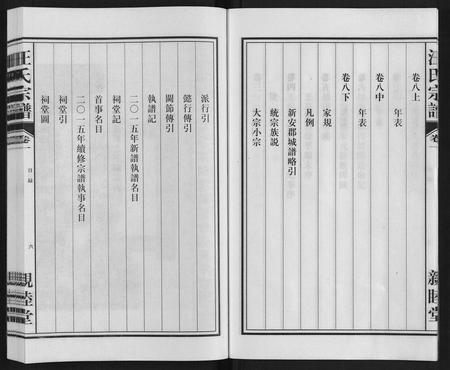 汪氏宗譜
卷一
親睦堂
卷八上
年表
卷八中
年表
卷八下
家規
凡例
新安郡城譜略引
統宗族説
大宗小宗
派行引
懿行傳引
閫節傳引
執譜記
二〇一五年新譜執譜名目
祠堂記
首事名目
二〇一五年續修宗譜執事名目
祠堂引
祠堂圖
汪氏宗譜
卷一
目録
六
親睦堂